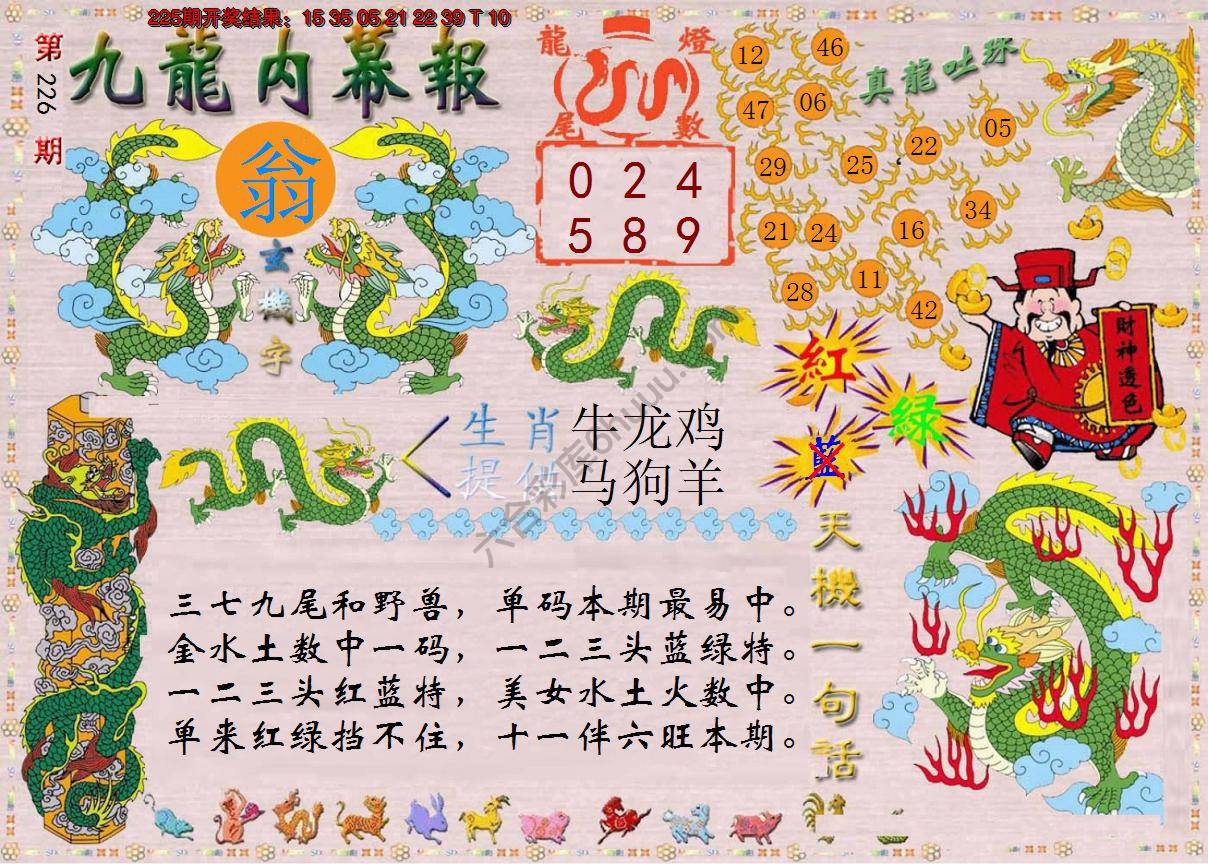 225期开奖结果：15 35 05 21 22 39 T 10
第226期
九龍内幕報
翁
玄機字
龍燈
尾數
0 2 4
5 8 9
真龍吐珠
12
46
47
06
05
22
29
25
34
21
24
16
11
28
42
財神透色
紅
綠
藍
生肖
提供
牛龙鸡
马狗羊
六合彩库6huuu.com
三七九尾和野兽，单码本期最易中。
金水土数中一码，一二三头蓝绿特。
一二三头红蓝特，美女水土火数中。
单来红绿挡不住，十一伴六旺本期。
天機一句話